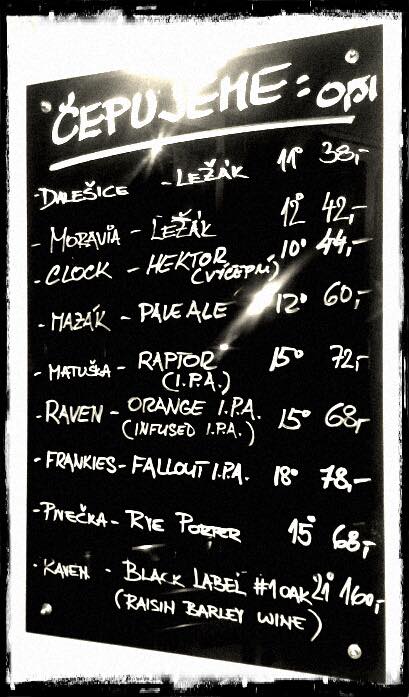 ČEPUJEME: 0,5l
- DALEŠICE - LEŽÁK 11° 38,-
- MORAVIA - LEŽÁK 12° 42,-
- CLOCK - HEKTOR 10° 44,-
(VÝČEPNÍ)
- MAZÁK - PALE ALE 12° 60,-
- MATUŠKA - RAPTOR 15° 72,-
(I.P.A.)
- RAVEN - ORANGE I.P.A. 15° 68,-
(INFUSED I.P.A.)
- FRANKIES - FALLOUT I.P.A. 18° 78,-
- PNEČKA - RYE PORTER 15° 68,-
- RAVEN - BLACK LABEL #1 OAK 21° 160,-
(RAISIN BARLEY WINE)